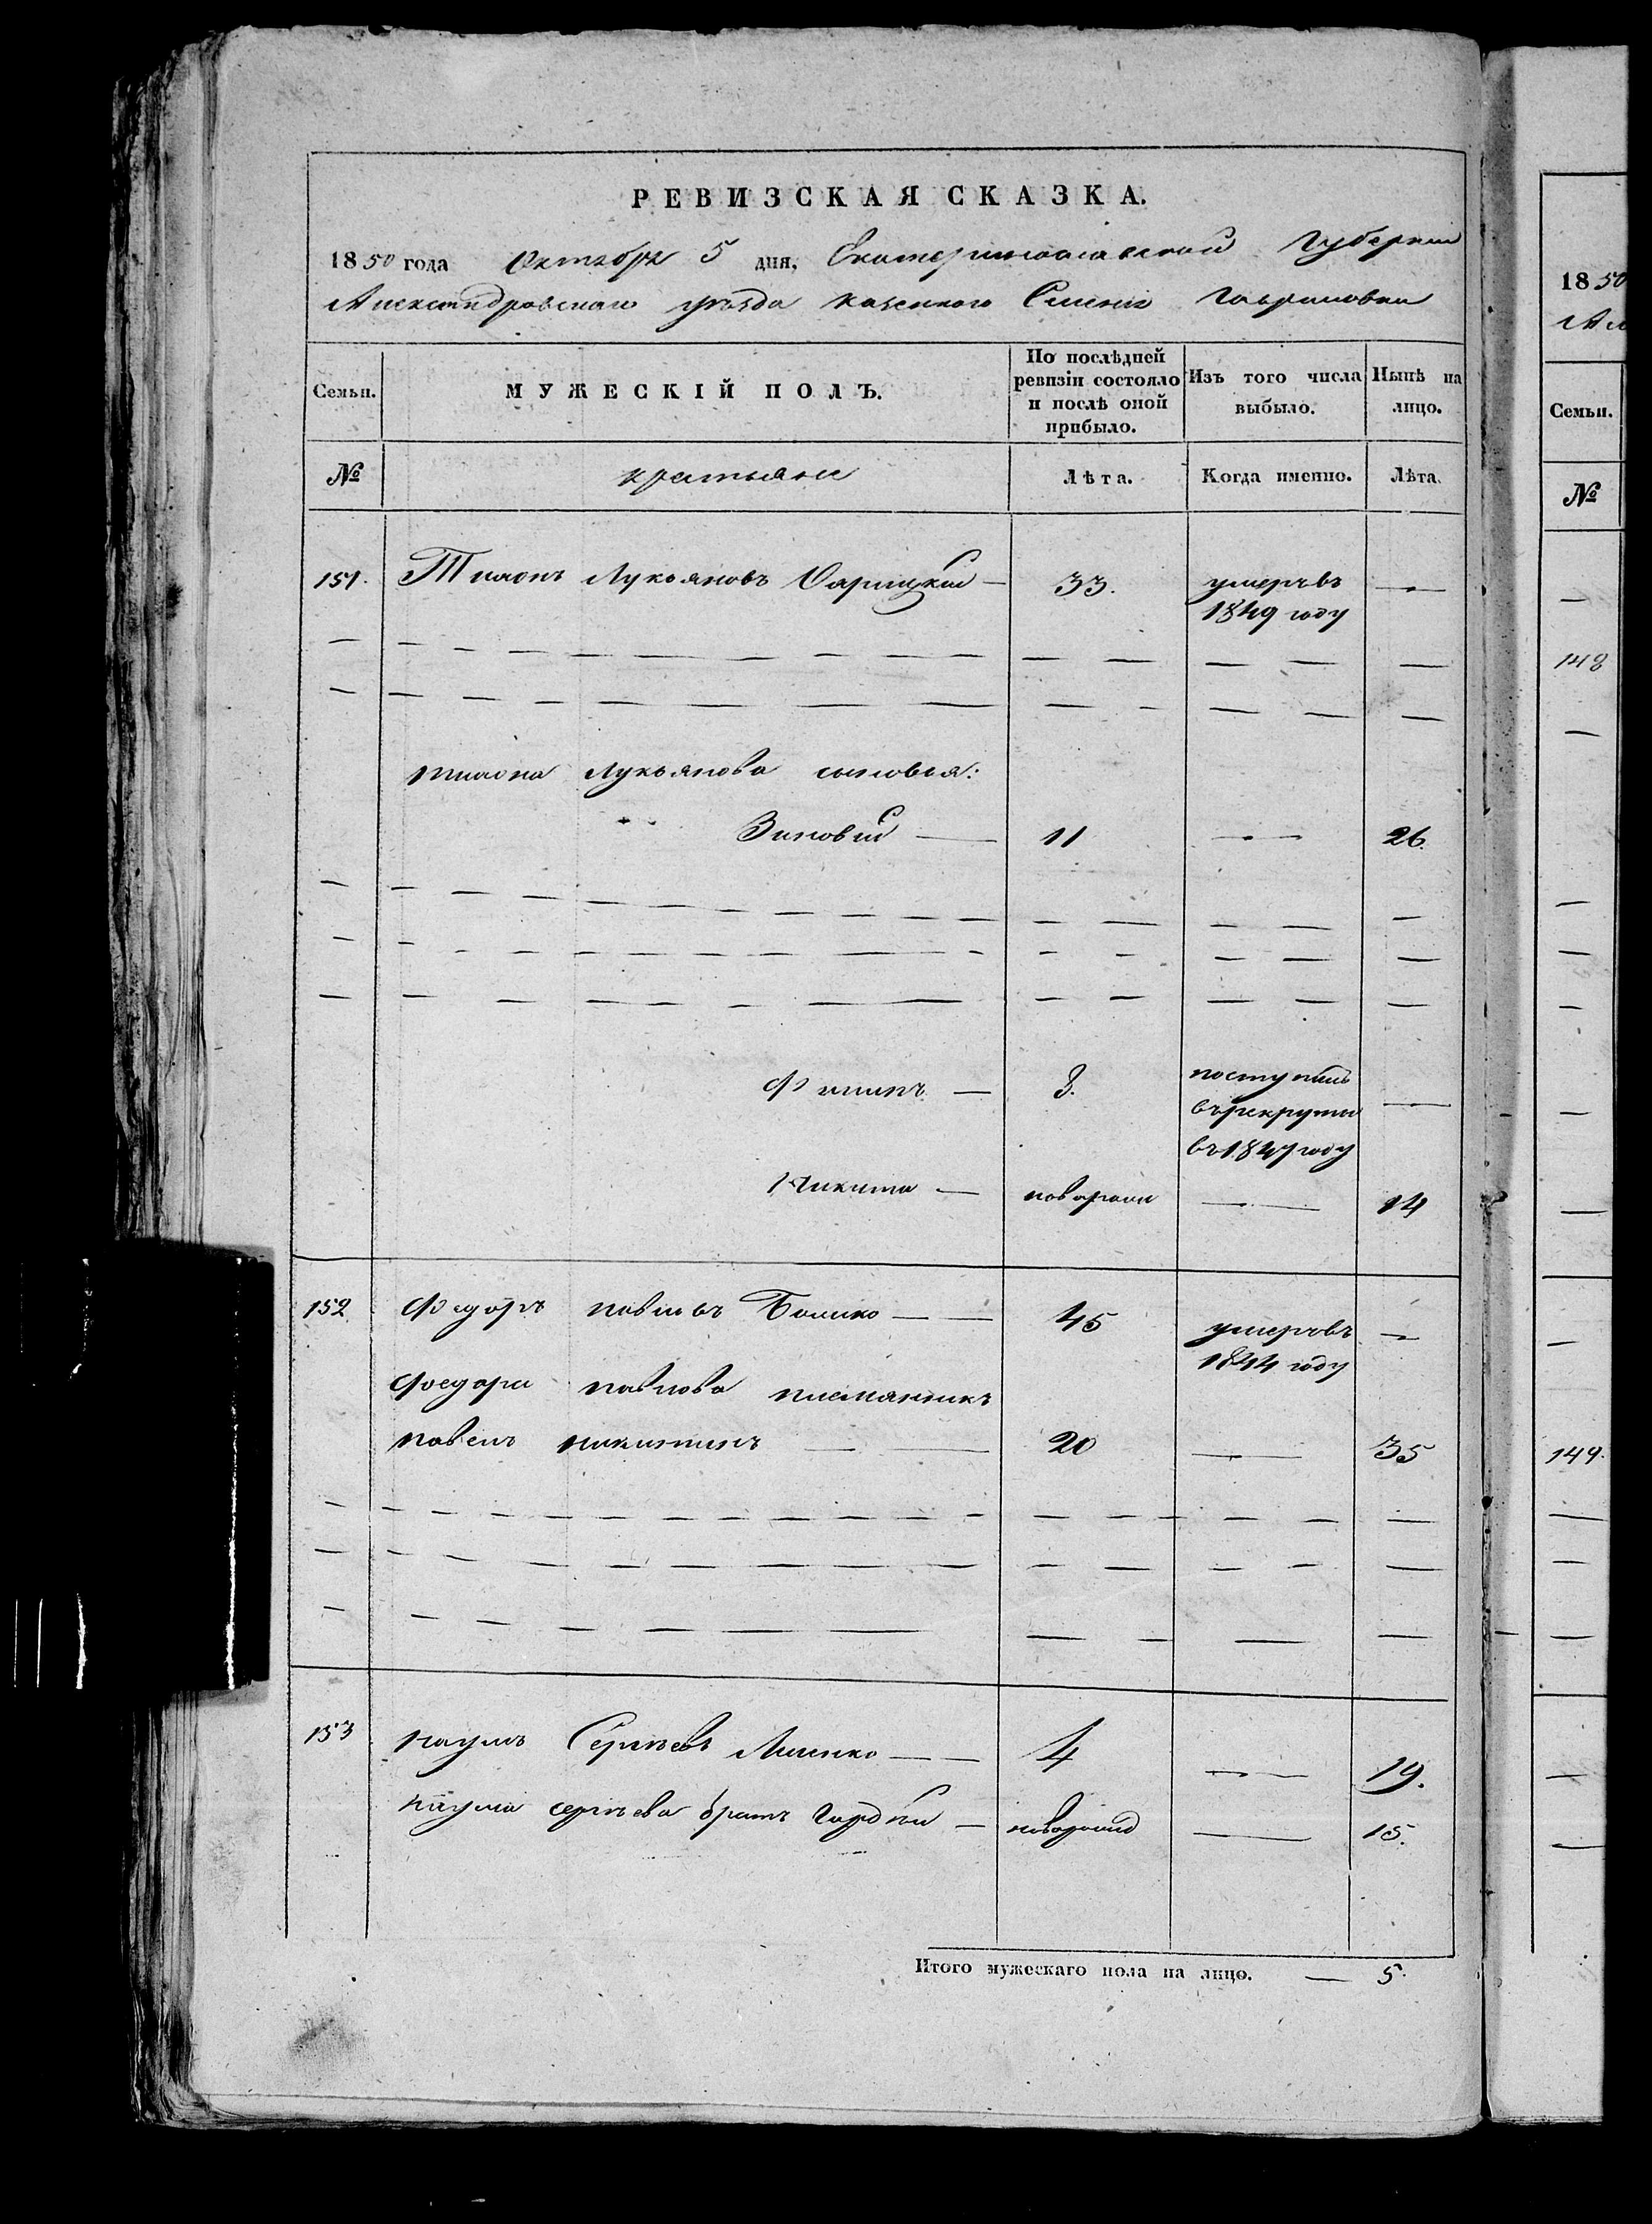 РЕВИЗСКАЯ СКАЗКА.
1850 года Октября 5 дня, Екатеринославской Губернии
Александровскаго уѣзда казеннаго Селенія Гавриловки
Семьи. МУЖЕСКІЙ ПОЛЪ. По послѣдней ревизіи состояло и послѣ оной прибыло. Изъ того числа выбыло. Нынѣ на лицо.
№ крестьяне Лѣта. Когда именно. Лѣта.
151. Тихонъ Лукьяновъ 33. умеръ въ 1849 году —
тихона Лукьянова сыновья:
Зиновій — 11 — 26.
Филипъ — 3. поступилъ въ рекруты въ 1847 году —
Никита — новорожен — 14
152 Федоръ павловъ 45 умеръ въ 1844 году —
Федора павлова племянникъ
павелъ никитинъ — 20 — 35
153 наумъ Сергѣевъ Лисенко — 4 — 19.
наума сергѣева братъ Гордѣй — новорожд — 15.
Итого мужескаго пола на лицо. — 5.
1850
Ал
Семьи.
№
148
149.